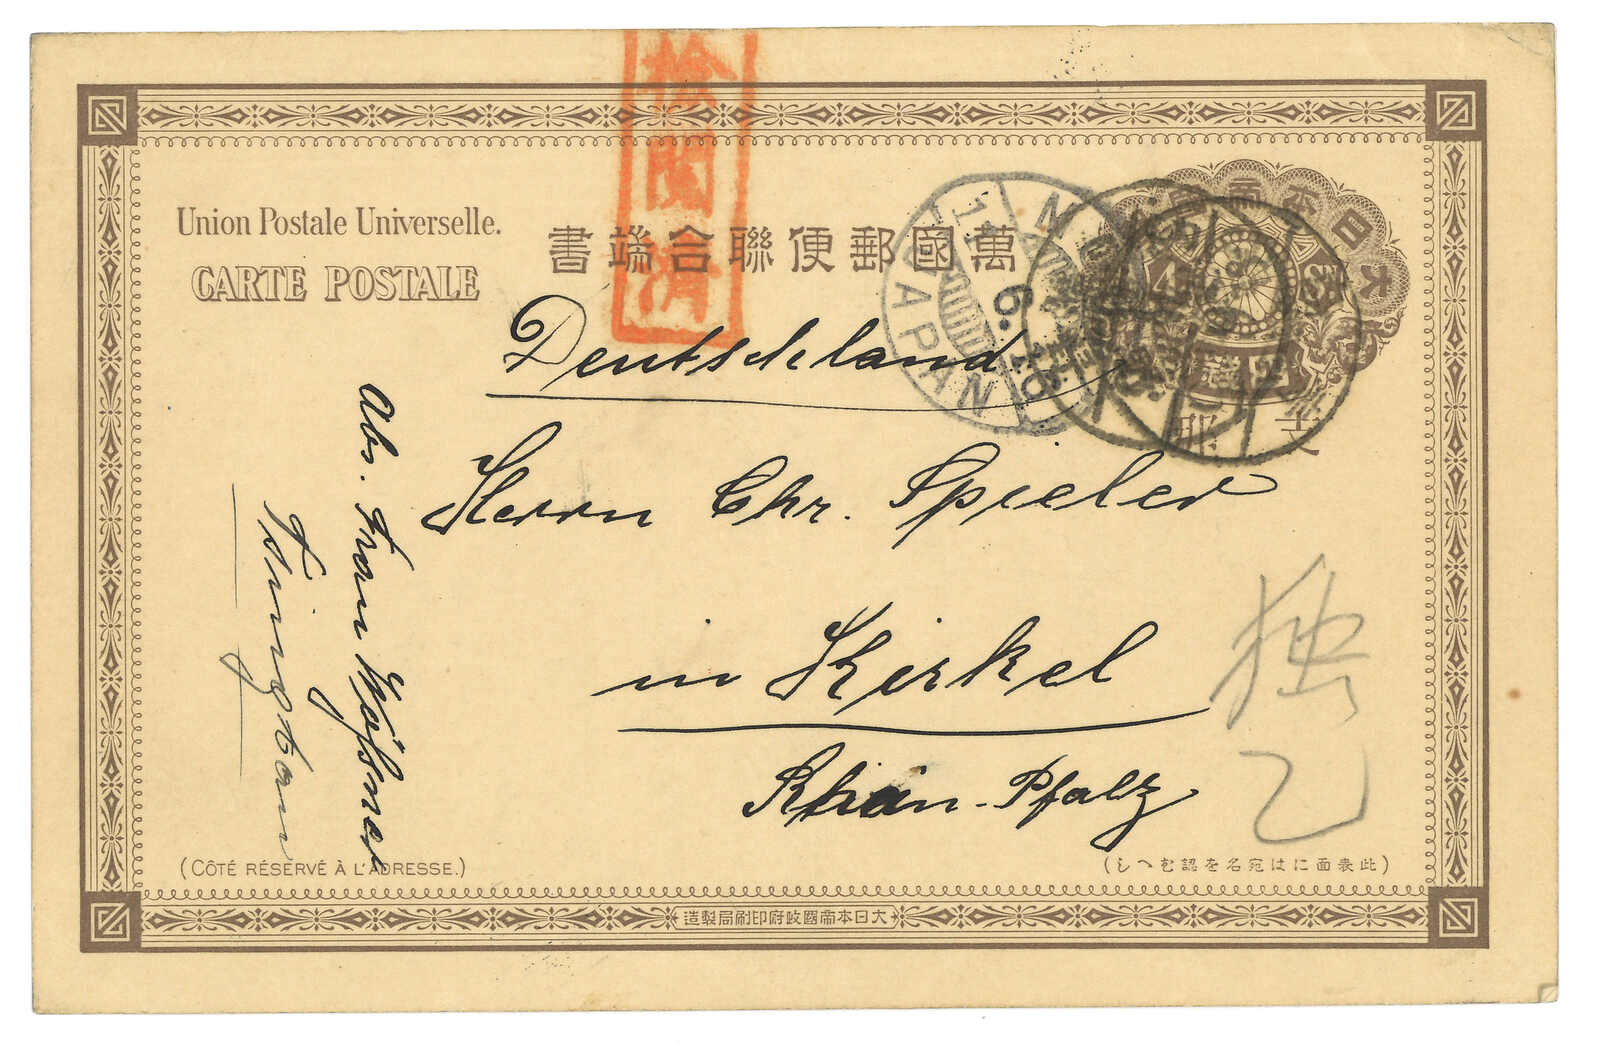 検閲濟
Union Postale Universelle.
CARTE POSTALE
書端合聯便郵國萬
大日本帝國
支郵
4
JAPAN
6.
16
Deutschland
Herrn Chr. Spieler
in Kirkel
Rhein-Pfalz
Abs. Frau
Tsingtau
独乙
(CÔTÉ RÉSERVÉ À L'ADRESSE.)
(しへむ認を名宛はに面表此)
造製局刷印府政國帝本日大